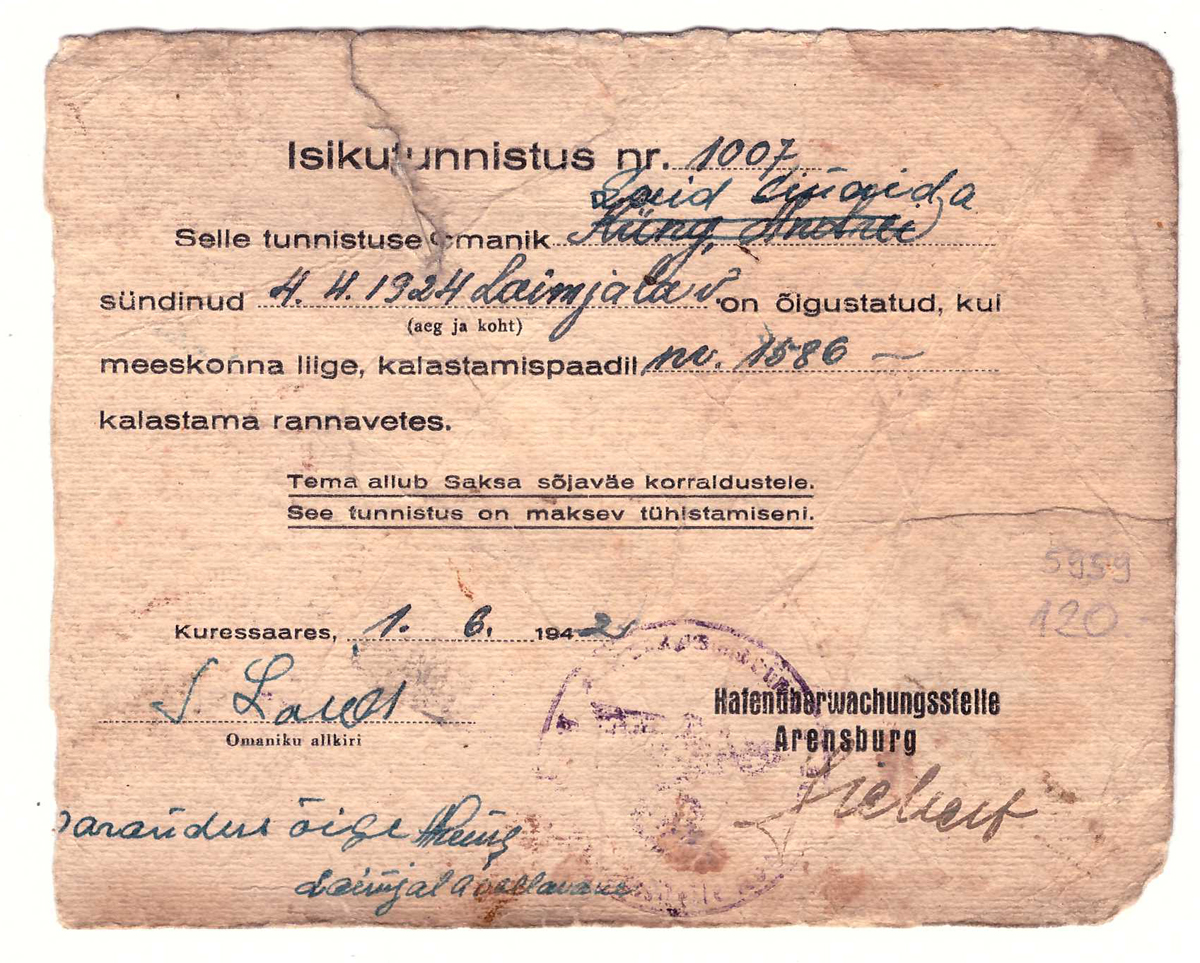 Isikutunnistus nr. 1007
Laid
Selle tunnistuse omanik Küng,
sündinud 4. 4. 1924 Laimjala v. on õigustatud, kui
(aeg ja koht)
meeskonna liige, kalastamispaadil nr. 1586 —
kalastama rannavetes.
Tema allub Saksa sõjaväe korraldustele.
See tunnistus on maksev tühistamiseni.
5959
120
Kuressaares, 1. 6. 1942
S. Laid
Omaniku allkiri
Hafenüberwachungsstelle
Arensburg
parandus õige Küng
Laimjala vallavanem